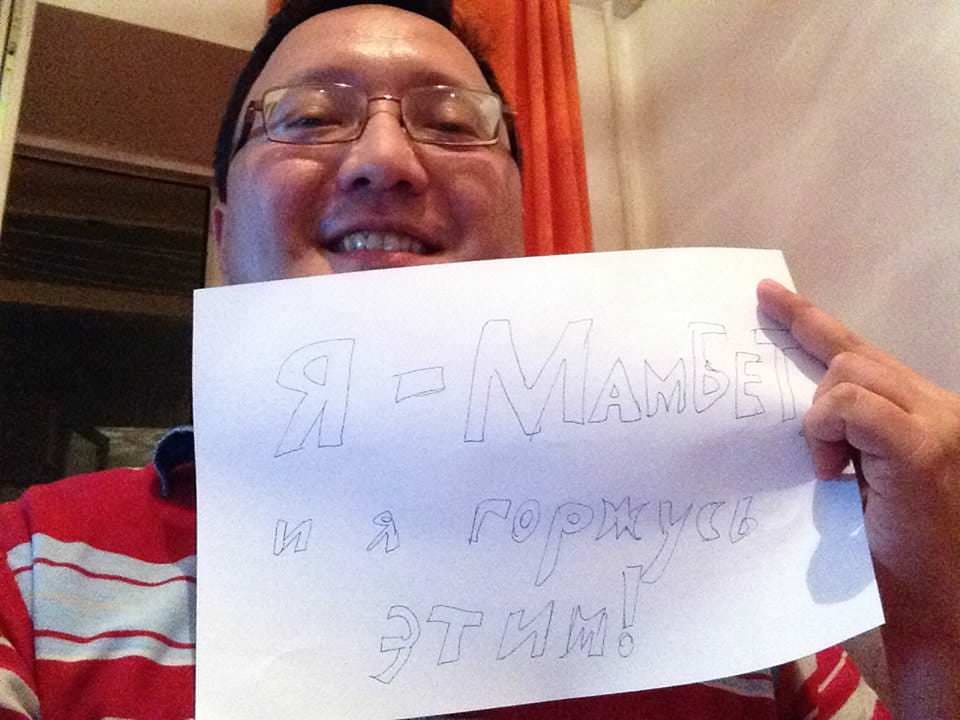 Я - МАМБЕТ,
и я горжусь
этим!